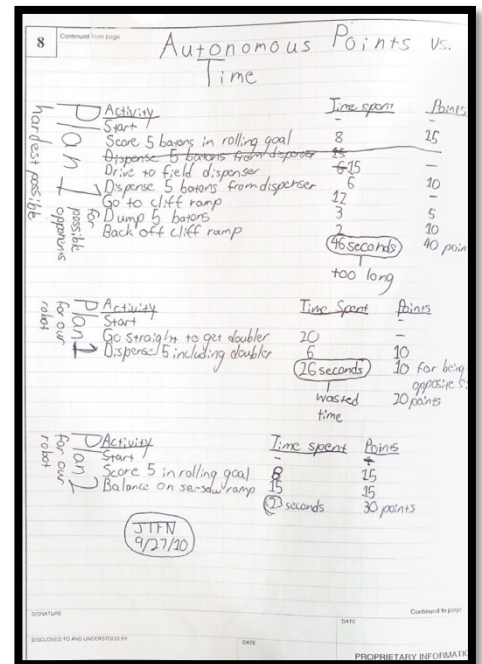 8
Continued from page
Autonomous Points vs.
Time
Plan 1
for possible opponents
hardest possible
Activity Time spent Points
Start - -
Score 5 batons in rolling goal 8 15
Dispense 5 batons from dispenser 15
Drive to field dispenser 15 -
Dispense 5 batons from dispenser 6 10
Go to cliff ramp 12 -
Dump 5 batons 3 5
Back off cliff ramp 2 10
46 seconds 40 poin
too long
Plan 2
for our robot
Activity Time Spent Points
Start - -
Go straight to get doubler 20 -
Dispense 5 including doubler 6 10
26 seconds 10 for being
opposite s
wasted 20 points
time
Plan 2
for our robot
Activity Time spent Points
Start -
Score 5 in rolling goal 8 15
Balance on se-saw ramp 15 15
23 seconds 30 points
JTFN
9/27/10
SIGNATURE
DATE
Continued to page
DISCLOSED TO AND UNDERSTOOD BY
DATE
PROPRIETARY INFORMATI